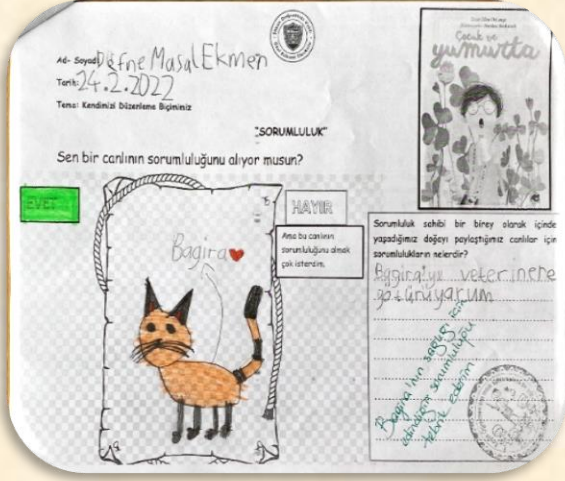 Ad- Soyad: Defne Masal Ekmen
Tarih: 24.2.2022
Tema: Kendimizi Düzenleme Biçiminiz
"SORUMLULUK"
Sen bir canlının sorumluluğunu alıyor musun?
EVET
Bagira
HAYIR
Ama bu canlının
sorumluluğunu almak
çok isterim.
Çocuk ve
yumurta
Sorumluluk sahibi bir birey olarak içinde
yaşadığımız doğayı paylaştığımız canlılar için
sorumlulukların nelerdir?
Bagira'yı veterinere
götürüyorum
Bagira'nın sağlığı için
edindiğin sorumluluğu
tebrik ederim